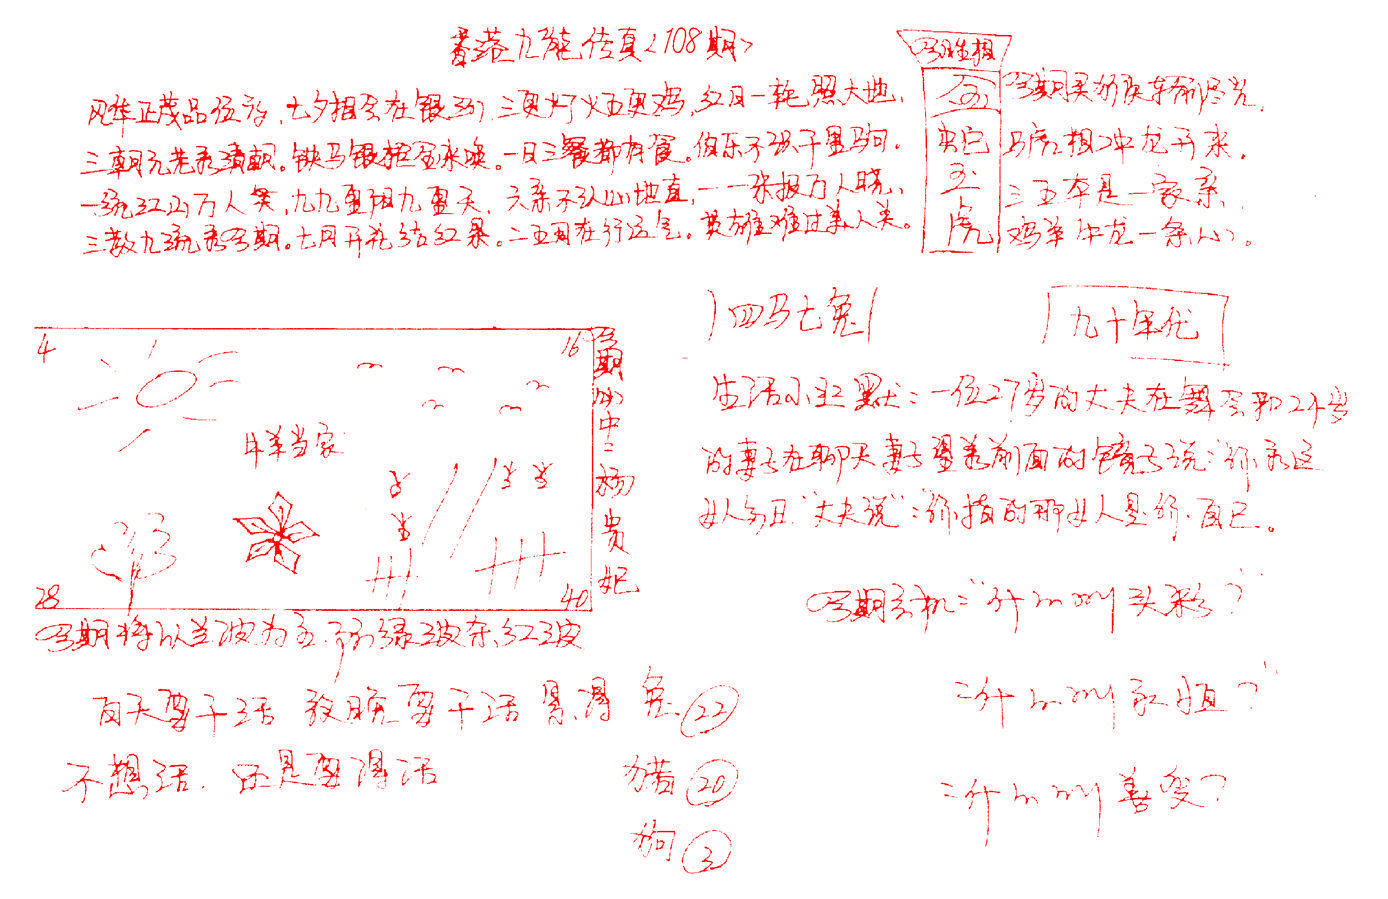 香港九龙传真<108期>
风华正茂品位高,七夕相会在银河,三更灯火五更鸡,红日一轮照大地,
三朝元老 。铁马银枪 。一日三餐都有餐。伯乐不识千里马向.
一统江山万人笑,九九重阳九重天,六亲不认心地直,一一张报万人晓,
三数九 今期。七月开花结红果。二五同在行运气。英雄难过美人关。
今期生相
金
蛇
玉
虎
今期买
马虎相冲龙开来.
三五本是一家亲
鸡羊牛龙一条心。
四马七兔
九十年代
4
16
28
40
牛羊当家
今期必中三 杨贵妃
今期将以兰波为主, 绿波东,红波
生活小幽默:一位27岁的丈夫在舞会和24岁
的妻子在聊天妻子望着前面的镜子说:你看这
女人 "丈夫说":你指的那女人是你自己。
今期玄机:"什么叫头彩?"
:什么叫永恒?"
:什么叫善变?
白天要干活 夜晚要干活
不想活. 还是要得活
兔 22
猪 20
狗 3